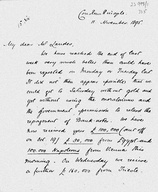 Constantinople
11 November 1895
My dear Mr Landes,
We have reached the end of last
week very much better than could have
been expected on Monday or Tuesday last.
It did not then appear possible that we
could get to Saturday without gold and
get without using the moratorium and
the government permission to refuse the
repayment of Bank notes. We have
now received upon £ 100,000 (out of
on the 10/), £ 50,000 from Egypt and
100,000 Napoleons from Vienna this
morning. On Wednesday we receive
a further £ 150,000 from